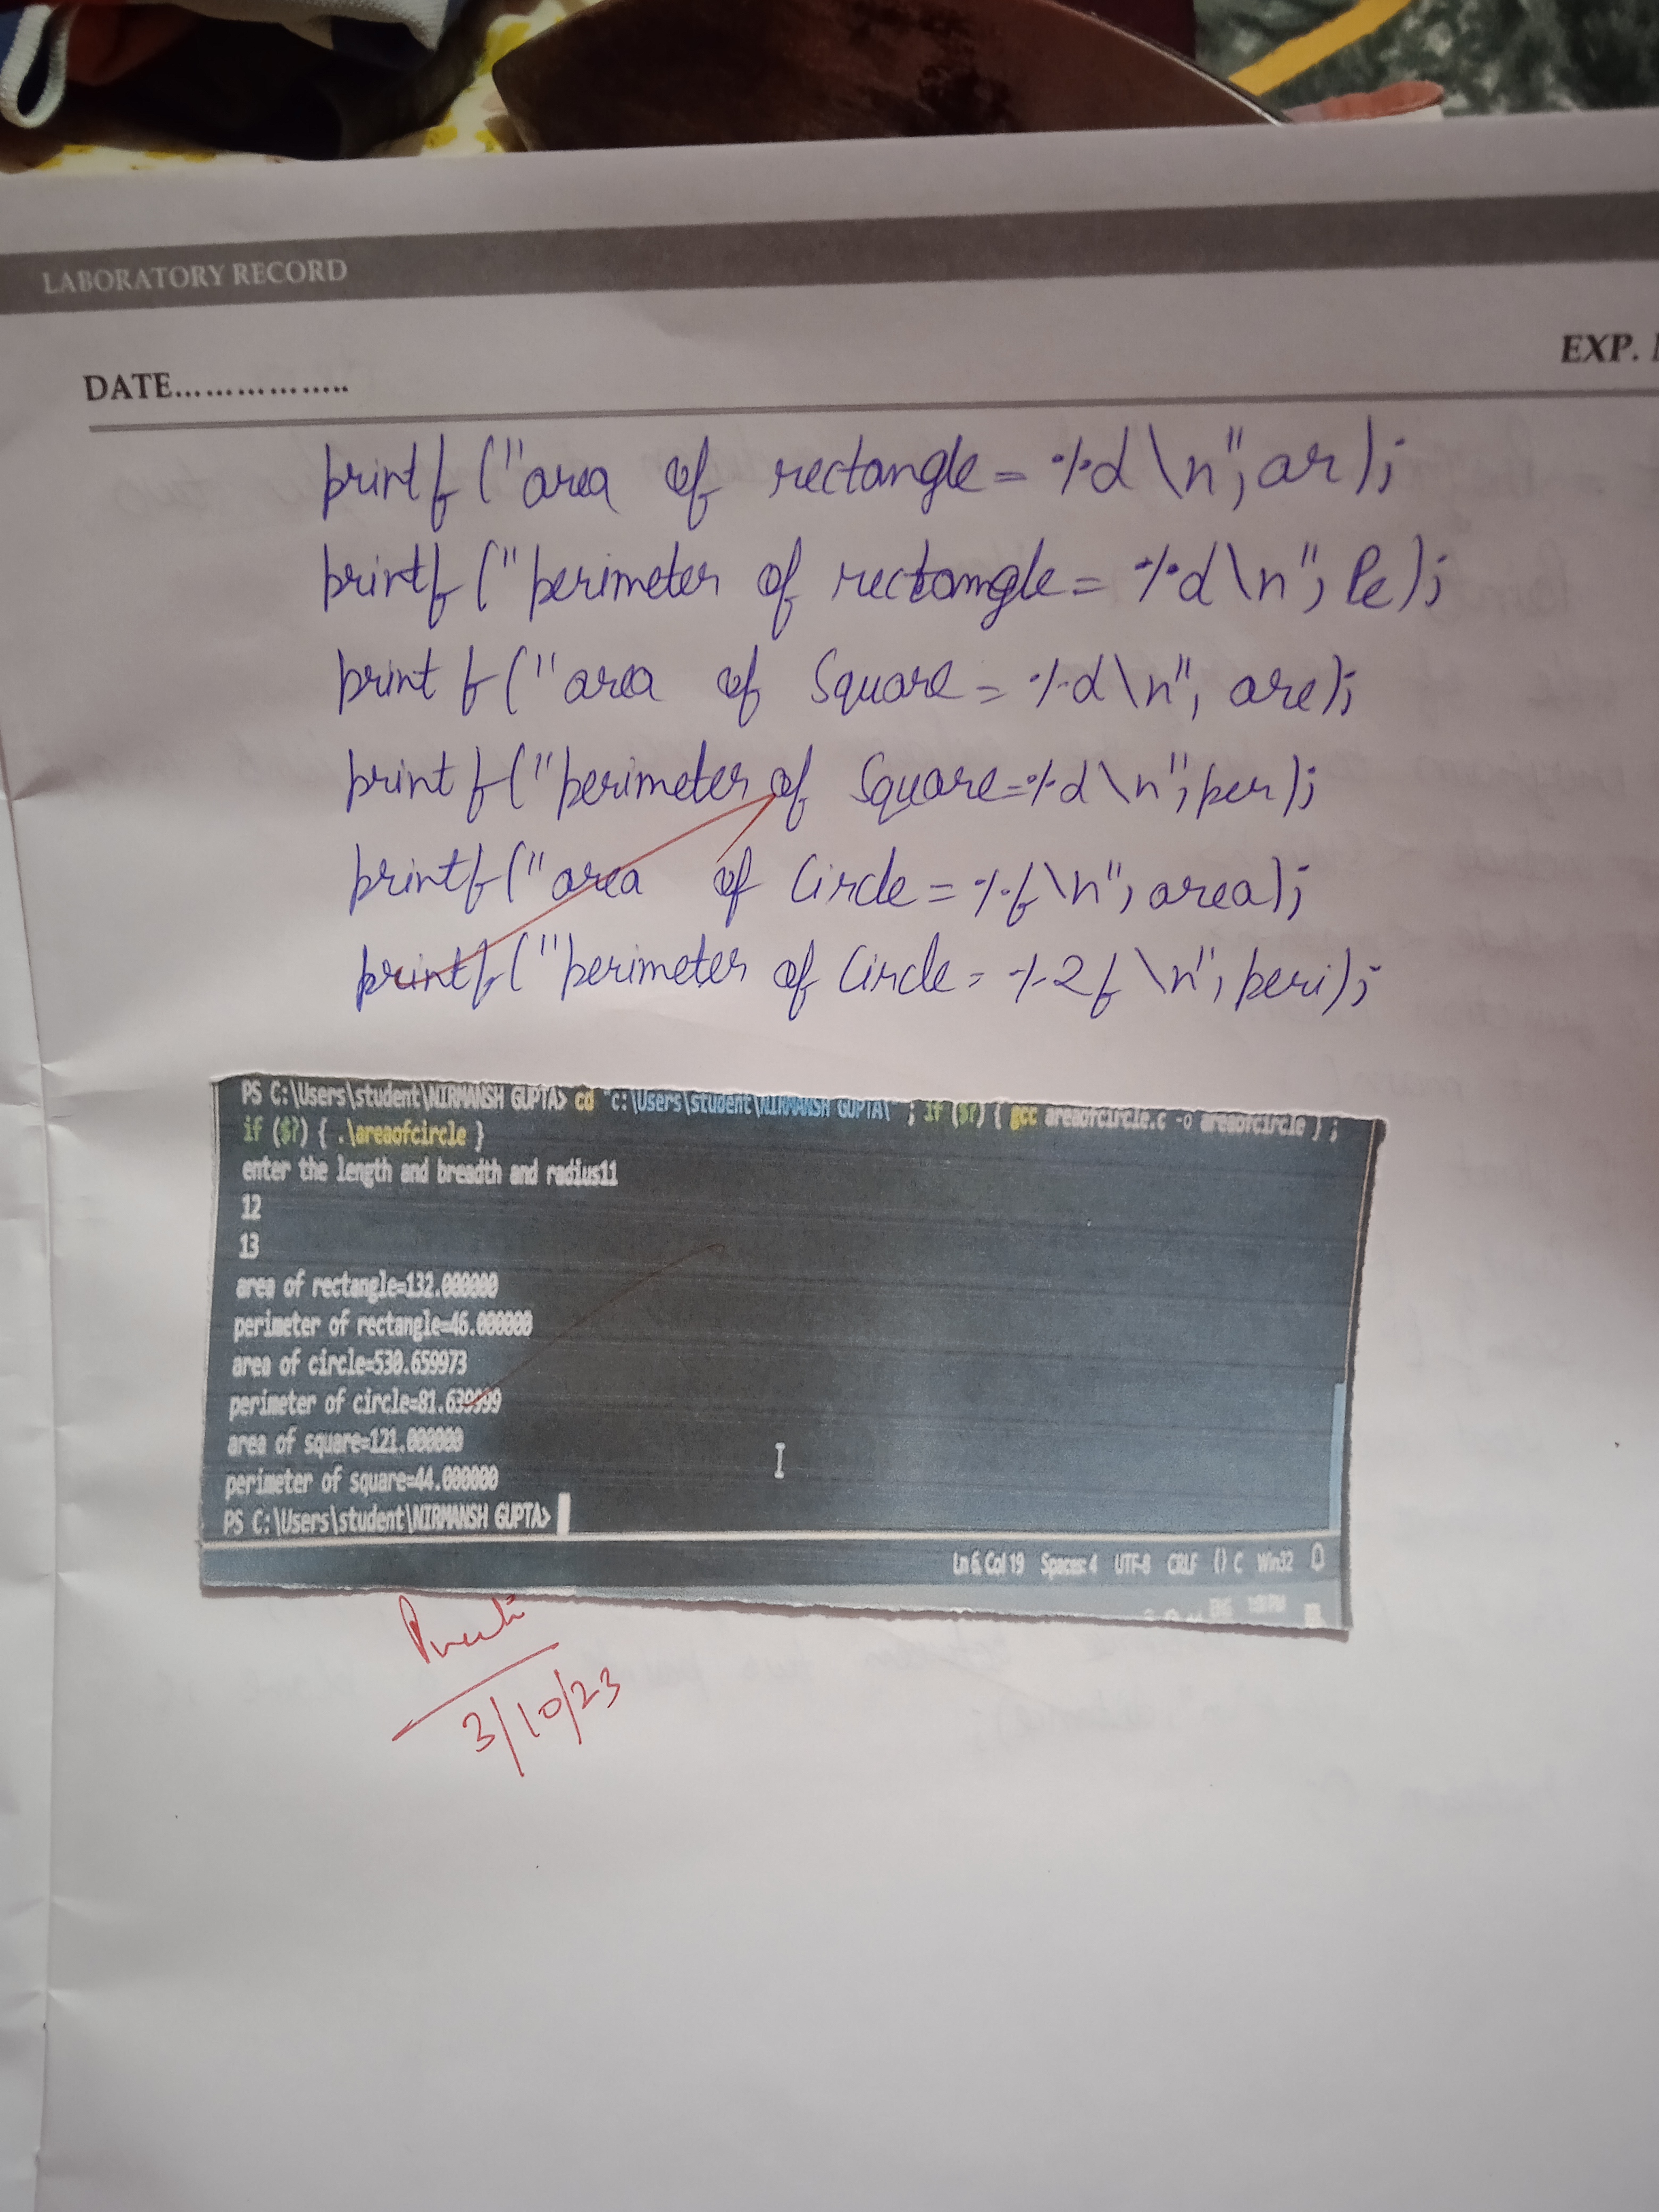 LABORATORY RECORD
EXP.
DATE..................
printf ("area of rectangle = %d \n", ar);
printf ("perimeter of rectangle = %d \n", Pe);
printf ("area of Square = %d \n", are);
printf ("perimeter of Square = %d \n", per);
printf ("area of Circle = %f \n", area);
printf ("perimeter of Circle = %2f \n", peri);
PS C:\Users\student\NIRMANSH GUPTA> cd "c:\Users\student\NIRMANSH GUPTA\" ; if ($?) { gcc areaofcircle.c -o areaofcircle } ;
if ($?) { .\areaofcircle }
enter the length and breadth and radius11
12
13
area of rectangle=132.000000
perimeter of rectangle=46.000000
area of circle=530.659973
perimeter of circle=81.639999
area of square=121.000000
perimeter of square=44.000000
PS C:\Users\student\NIRMANSH GUPTA>
Ln 6, Col 19 Spaces: 4 UTF-8 CRLF {} C Win32
3/10/23